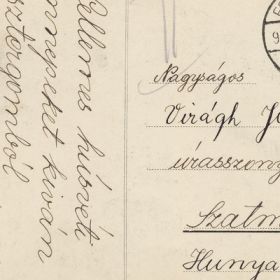 Kellemes húsvéti
ünnepeket kiván
Esztergomból
Nagyságos
Virágh J
úrasszony
Szatm
Hunya